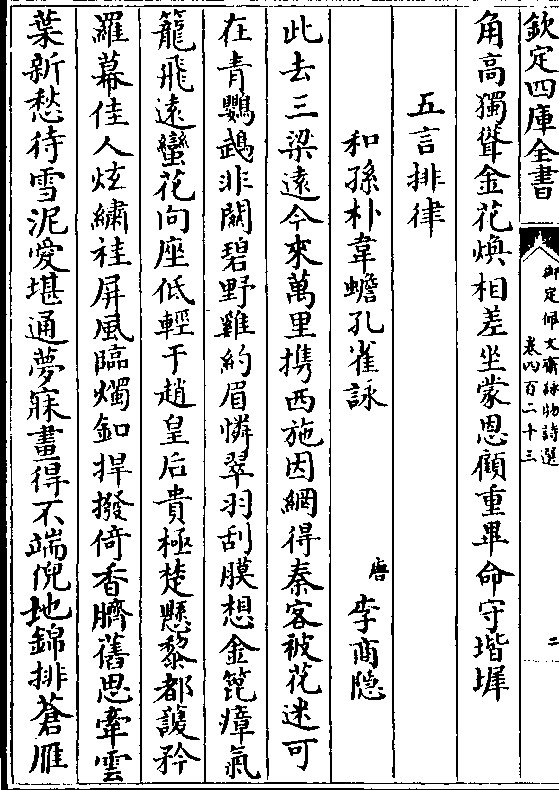 欽定四庫全書
御定佩文齋詠物詩選
卷四百二十三
二
角高獨聳金花煥相差坐蒙恩顧重畢命守堦墀
五言排律
和孫朴韋蟾孔雀詠
唐 李商隠
此去三梁遠今來萬里携西施因網得秦客被花迷可
在青鸚鵡非闗碧野雞約眉憐翠羽刮膜想金篦瘴氣
籠飛逺蠻花向座低輕于趙皇后貴極楚懸黎都護矜
羅幕佳人炫繡袿屏風臨燭釦捍撥倚香臍舊思牽雲
葉新愁待雪泥愛堪通夢寐畫得不端倪地錦排蒼雁